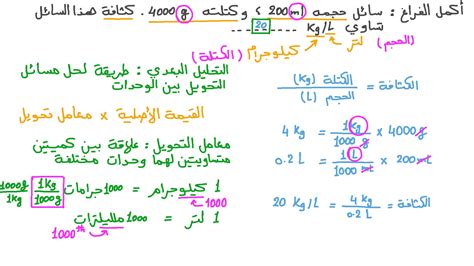 أكمل الفراغ : سائل حجمه 200 ml و كتلته 4000 g . كثافة هذا السائل
تساوي ---- 20 ---- Kg/L
(الحجم) لتر كيلوجرام (الكتلة)
التحليل البعدي : طريقة لحل مسائل
التحويل بين الوحدات
القيمة الأصلية × معامل تحويل
معامل التحويل : علاقة بين كميتين
متساويتين لهما وحدات مختلفة
1 كيلوجرام = 1000 جرامات 1Kg/1000g 1000g/1Kg
1000
1 لتر = 1000 ملليلترات
1000th
الكثافة = الكتلة (Kg) / الحجم (L)
4 Kg = 1Kg/1000g × 4000g
0.2 L = 1L/1000mL × 200mL
20 Kg/L = 4Kg/0.2L = الكثافة